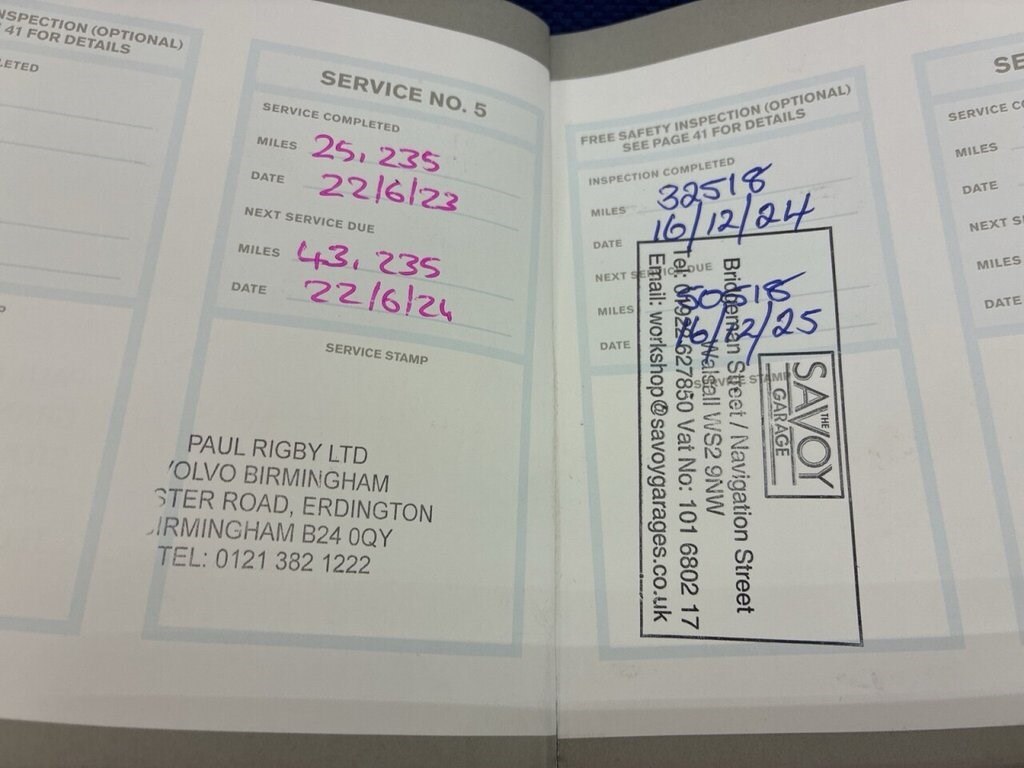 NSPECTION (OPTIONAL)
41 FOR DETAILS
LETED
SERVICE NO. 5
SERVICE COMPLETED
MILES 25,235
DATE 22/6/23
NEXT SERVICE DUE
MILES 43,235
DATE 22/6/24
SERVICE STAMP
PAUL RIGBY LTD
VOLVO BIRMINGHAM
STER ROAD, ERDINGTON
BIRMINGHAM B24 0QY
TEL: 0121 382 1222
FREE SAFETY INSPECTION (OPTIONAL)
SEE PAGE 41 FOR DETAILS
INSPECTION COMPLETED
MILES 32518
DATE 16/12/24
NEXT SERVICE DUE
MILES 50518
DATE 16/12/25
SERVICE STAMP
THE SAVOY
GARAGE
Bridgeman Street / Navigation Street
Walsall WS2 9NW
Tel: 01922 627850 Vat No: 101 6802 17
Email: workshop@savoygarages.co.uk
SE
SERVICE CO
MILES
DATE
NEXT S
MILES
DATE